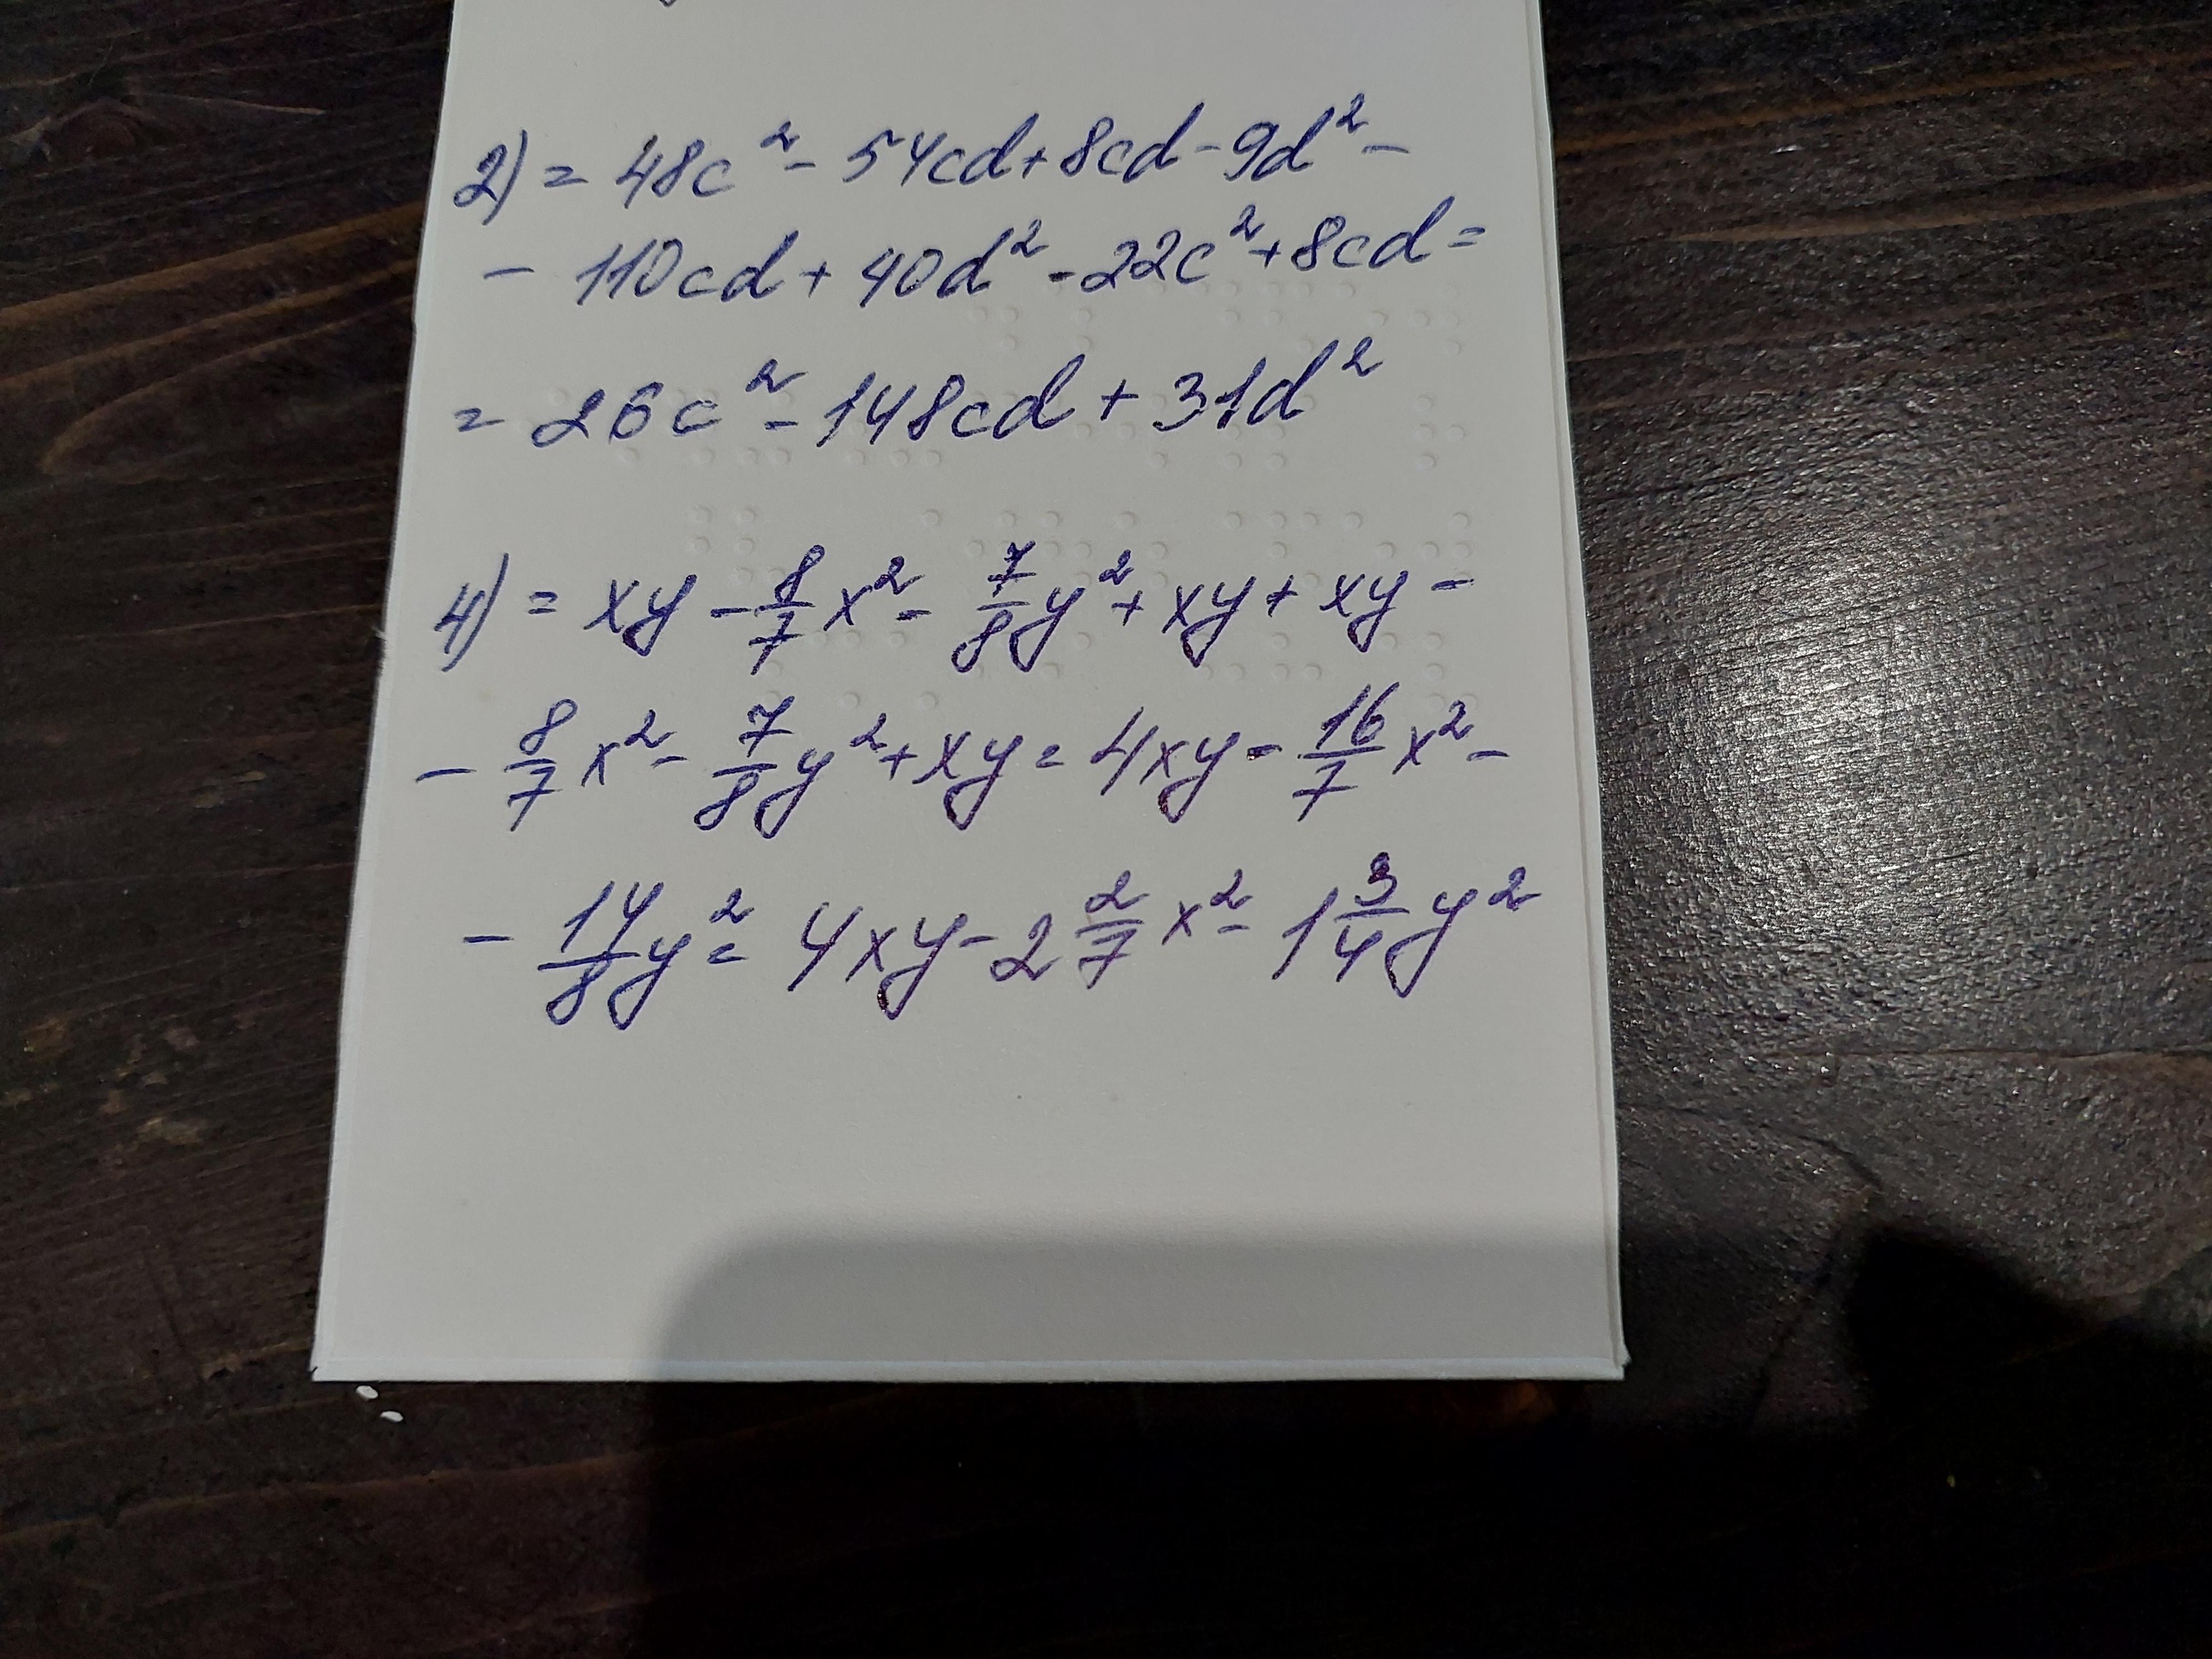 2) = 48c² - 54cd + 8cd - 9d² -
- 110cd + 40d² - 22c² + 8cd =
= 26c² - 148cd + 31d²
4) = xy - 8/7 x² - 7/8 y² + xy + xy -
- 8/7 x² - 7/8 y² + xy = 4xy - 16/7 x² -
- 14/8 y² = 4xy - 2 2/7 x² - 1 3/4 y²